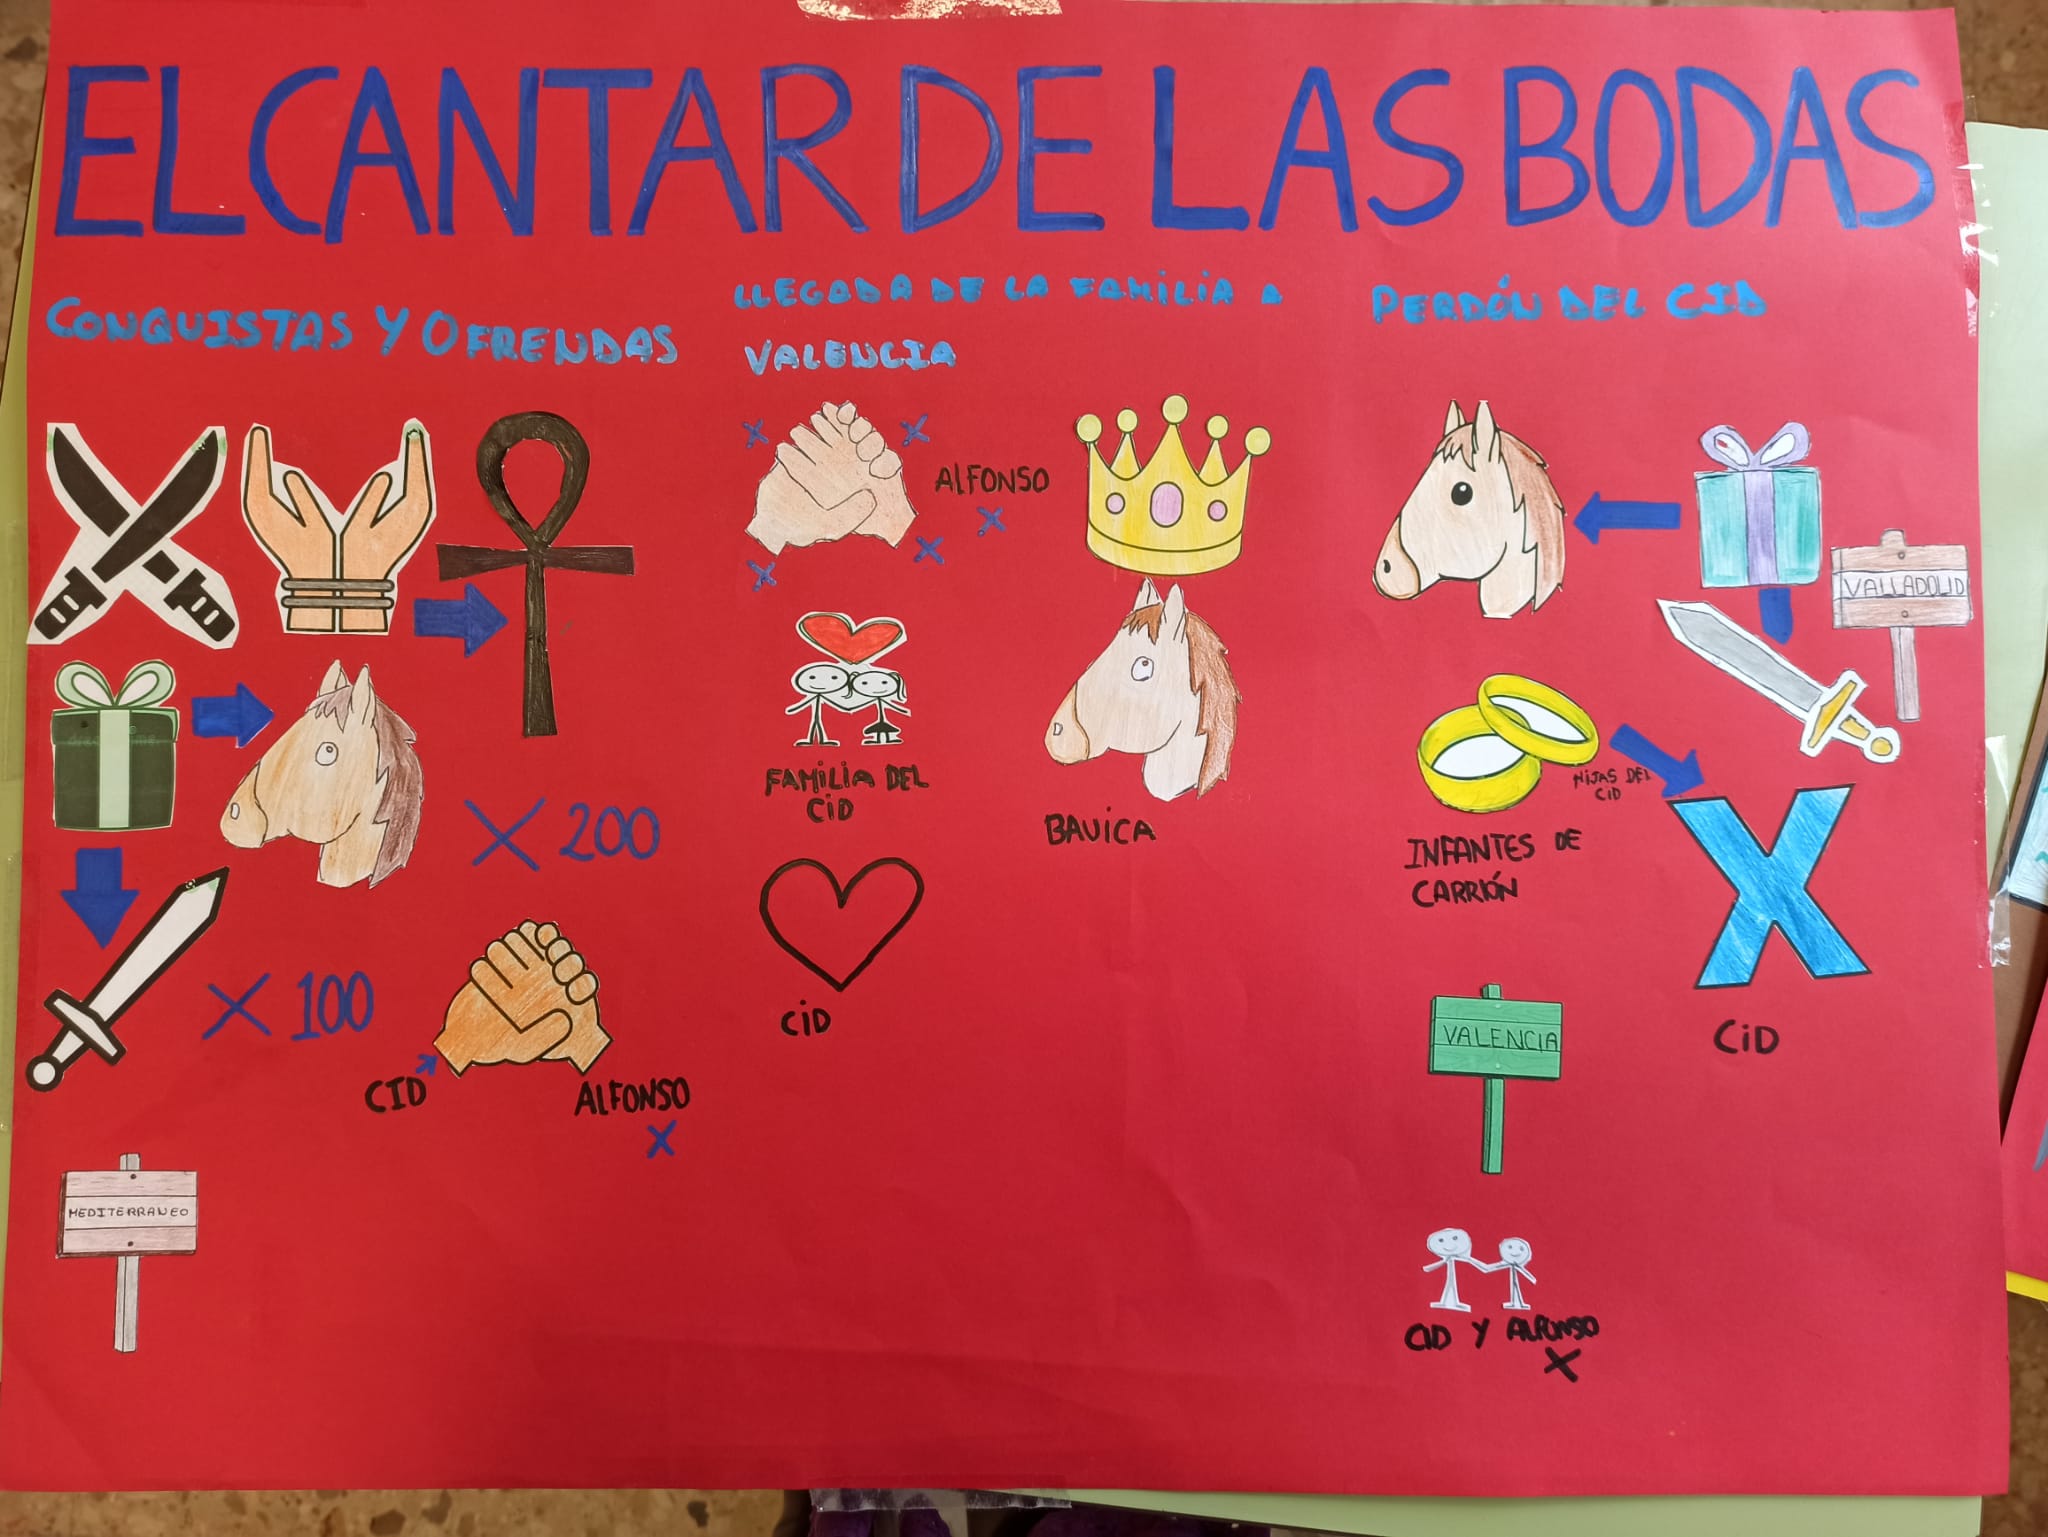 EL CANTAR DE LAS BODAS
CONQUISTAS Y OFRENDAS
X 200
X 100
CID
ALFONSO
X
MEDITERRANEO
LLEGADA DE LA FAMILIA A
VALENCIA
ALFONSO
X
FAMILIA DEL
CID
CID
BAVICA
PERDÓN DEL CID
VALLADOLID
HIJAS DEL
CID
INFANTES DE
CARRIÓN
X
CID
VALENCIA
CID Y ALFONSO
X